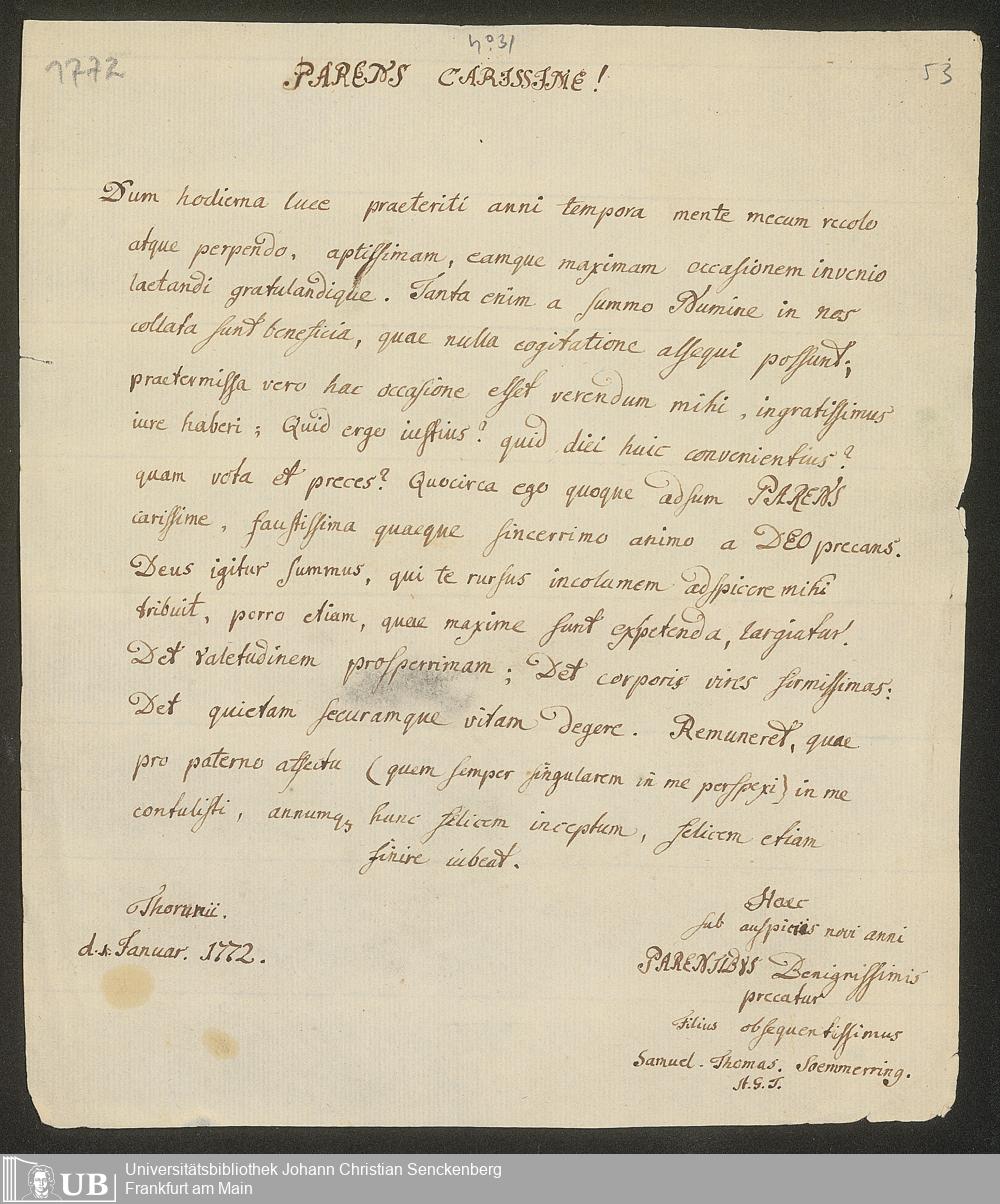 no 31
1772
53
PARENS CARISSIME!
Dum hodierna luce praeteriti anni tempora mente mecum recolo
atque perpendo, aptissimam, eamque maximam occasionem invenio
laetandi gratulandique. Tanta enim a summo Numine in nos
collata sunt beneficia, quae nulla cogitatione assequi possunt;
praetermissa vero hac occasione esset verendum mihi, ingratissimus
iure haberi; Quid ergo iustius? quid diei huic convenientius?
quam vota et preces? Quocirca ego quoque adsum PARENS
carissime, faustissima quaeque sincerrimo animo a DEO precans.
Deus igitur summus, qui te rursus incolumem adspicere mihi
tribuit, porro etiam, quae maxime sunt expetenda, largiatur!
Det valetudinem prosperrimam; Det corporis vires firmissimas;
Det quietam securamque vitam degere. Remuneret, quae
pro paterno affectu (quem semper singularem in me perspexi) in me
contulisti, annumq; hunc felicem inceptum, felicem etiam
finire iubeat.
Thorunii.
d. 1. Januar. 1772.
Haec
sub auspiciis novi anni
PARENTIBVS Benignissimis
precatur
Filius obsequentissimus
Samuel. Thomas. Soemmerring.
A.G.T.
UB
Universitätsbibliothek Johann Christian Senckenberg
Frankfurt am Main